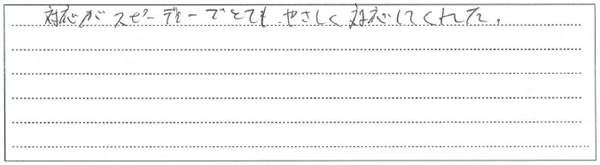 対応がスピーディーでとてもやさしく対応してくれた。